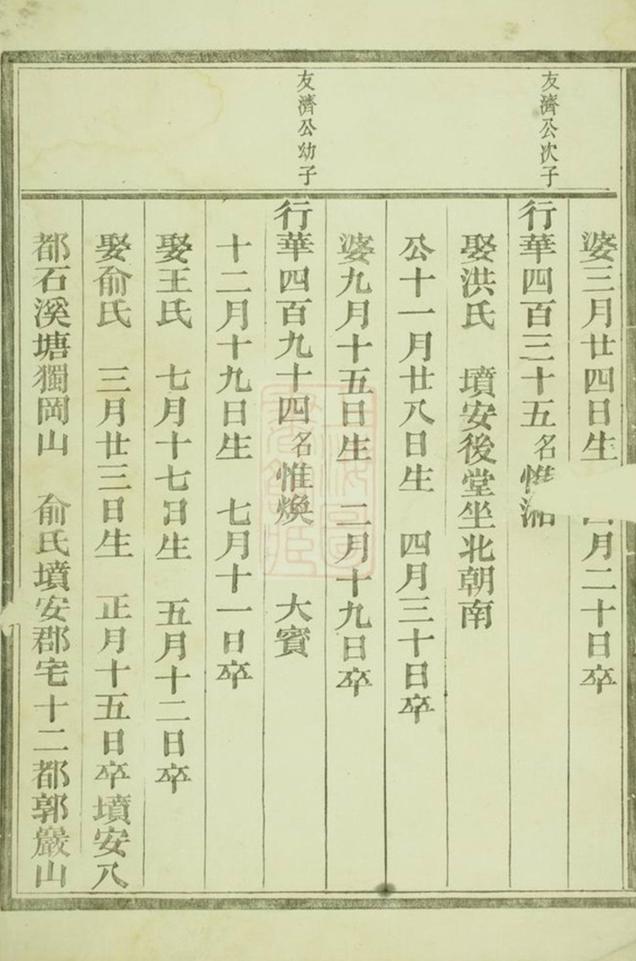 婆三月廿四日生　月二十日卒
友濟公次子
行華四百三十五名惟
娶洪氏　墳安後堂坐北朝南
公十一月廿八日生　四月三十日卒
婆九月十五日生　二月十九日卒
友濟公幼子
行華四百九十四名惟煥　大賓
十二月十九日生　七月十一日卒
娶王氏　七月十七日生　五月十二日卒
娶俞氏　三月廿三日生　正月十五日卒墳安八
都石溪塘獨岡山　俞氏墳安郡宅十二都郭巖山